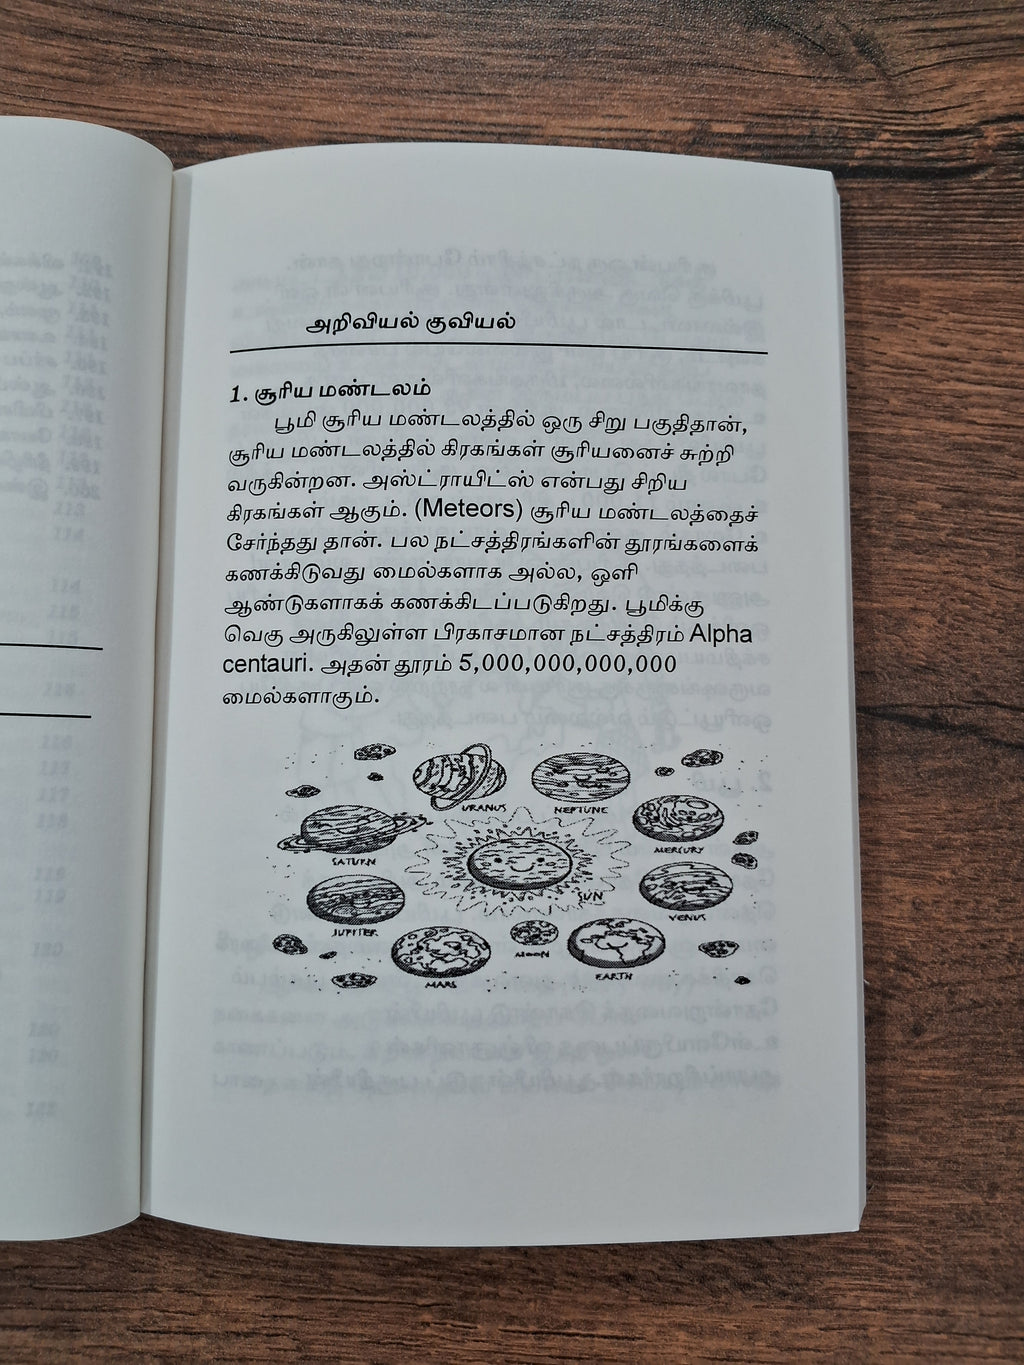 அறிவியல் குவியல்
1. சூரிய மண்டலம்
பூமி சூரிய மண்டலத்தில் ஒரு சிறு பகுதிதான்,
சூரிய மண்டலத்தில் கிரகங்கள் சூரியனைச் சுற்றி
வருகின்றன. அஸ்ட்ராயிட்ஸ் என்பது சிறிய
கிரகங்கள் ஆகும். (Meteors) சூரிய மண்டலத்தைச்
சேர்ந்தது தான். பல நட்சத்திரங்களின் தூரங்களைக்
கணக்கிடுவது மைல்களாக அல்ல, ஒளி
ஆண்டுகளாகக் கணக்கிடப்படுகிறது. பூமிக்கு
வெகு அருகிலுள்ள பிரகாசமான நட்சத்திரம் Alpha
centauri. அதன் தூரம் 5,000,000,000,000
மைல்களாகும்.
URANUS
NEPTUNE
SATURN
MERCURY
SUN
JUPITER
VENUS
MARS
MOON
EARTH